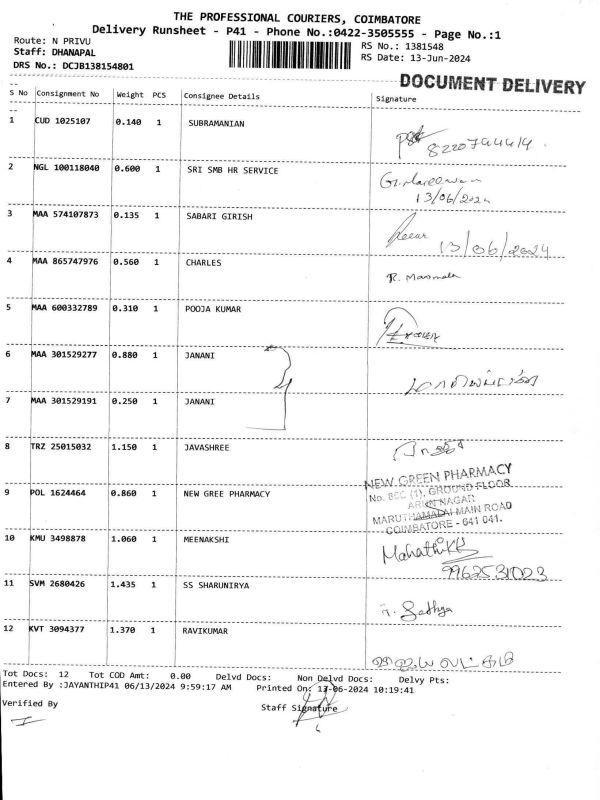 THE PROFESSIONAL COURIERS, COIMBATORE
Delivery Runsheet - P41 - Phone No.:0422-3505555 - Page No.:1
Route: N PRIVU
RS No.: 1381548
Staff: DHANAPAL
RS Date: 13-Jun-2024
DRS No.: DCJB138154801
DOCUMENT DELIVERY
S No Consignment No Weight PCS Consignee Details Signature
1 CUD 1025107 0.140 1 SUBRAMANIAN
8220794414
2 NGL 100118040 0.600 1 SRI SMB HR SERVICE
13/06/2024
3 MAA 574107873 0.135 1 SABARI GIRISH
13/06/2024
4 MAA 865747976 0.560 1 CHARLES
R.
5 MAA 600332789 0.310 1 POOJA KUMAR
6 MAA 301529277 0.880 1 JANANI
7 MAA 301529191 0.250 1 JANANI
8 TRZ 25015032 1.150 1 JAVASHREE
NEW GREEN PHARMACY
9 POL 1624464 0.860 1 NEW GREE PHARMACY
GROUND FLOOR
ARUN NAGAR
MARUTHAMALAI MAIN ROAD
COIMBATORE - 641 041.
10 KMU 3498878 1.060 1 MEENAKSHI
9962531023
11 SVM 2680426 1.435 1 SS SHARUNIRYA
Sathya
12 KVT 3094377 1.370 1 RAVIKUMAR
Tot Docs: 12 Tot COD Amt: 0.00 Delvd Docs: Non Delvd Docs: Delvy Pts:
Entered By :JAYANTHIP41 06/13/2024 9:59:17 AM Printed On: 13-06-2024 10:19:41
Verified By
Staff Signature